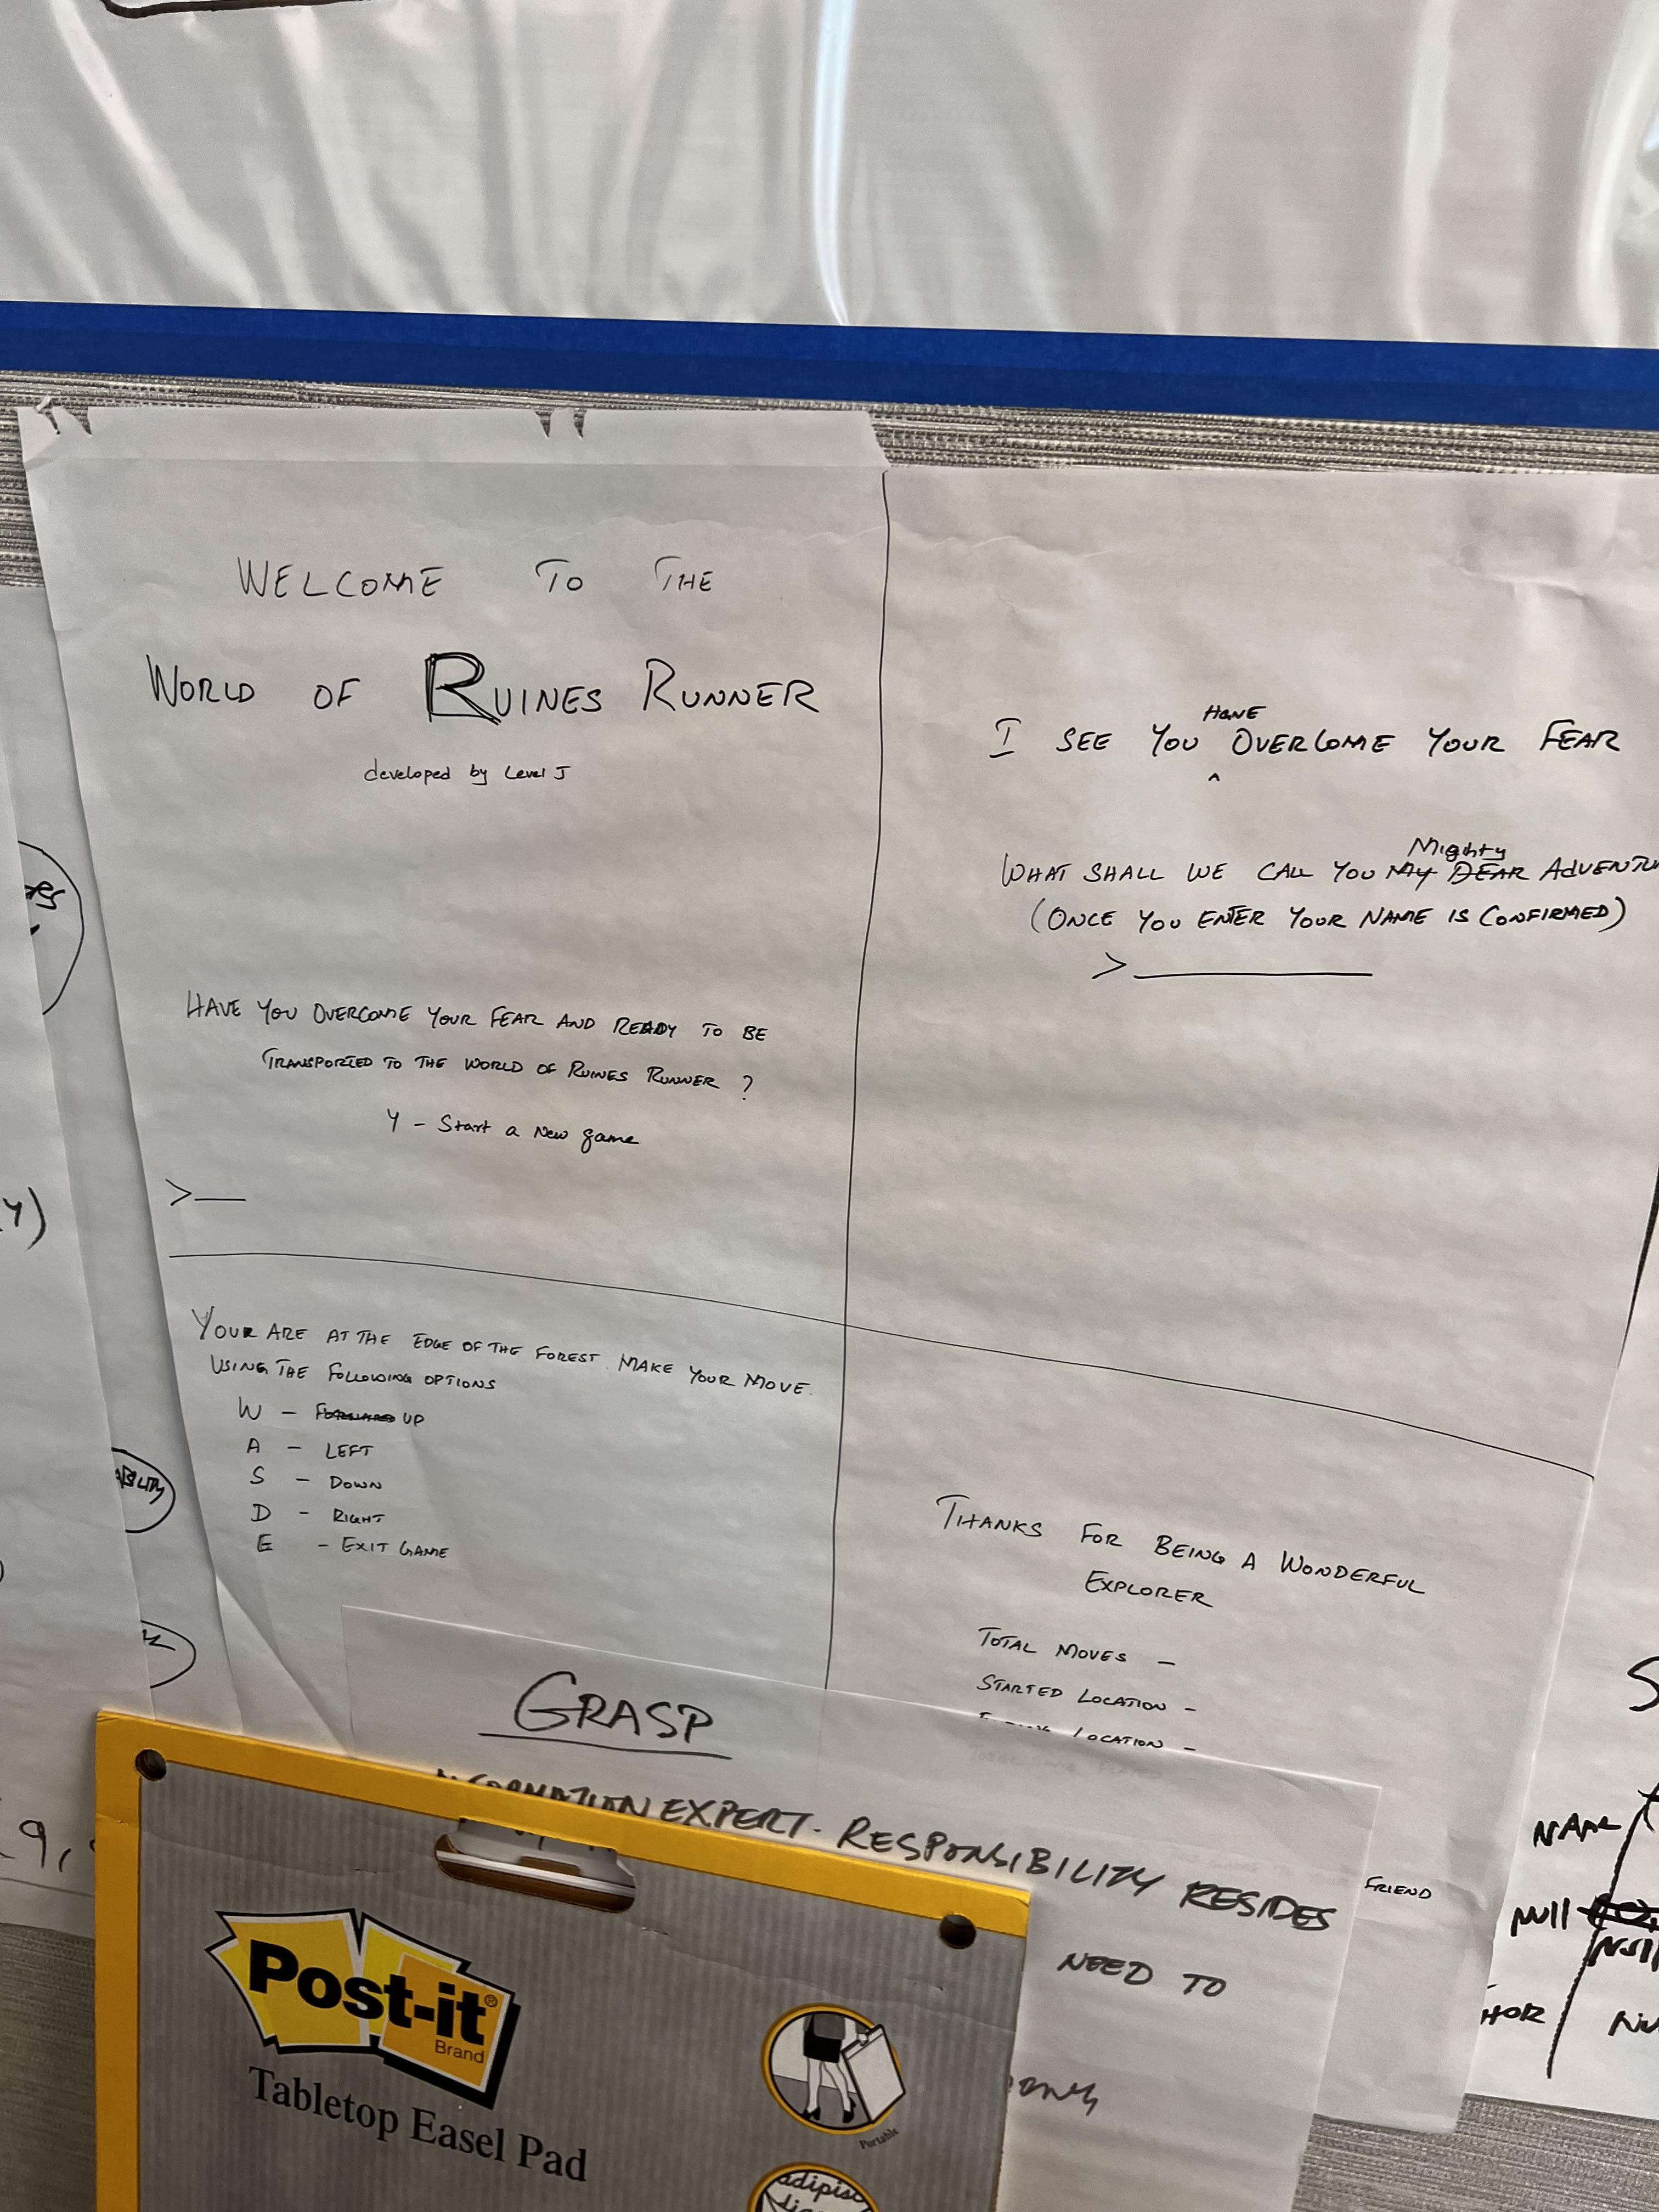 WELCOME TO THE
WORLD OF RUINES RUNNER
developed by Level J
HAVE YOU OVERCOME YOUR FEAR AND READY TO BE
TRANSPORTED TO THE WORLD OF RUINES RUNNER ?
Y - Start a New game
>__
I SEE YOU HAVE OVERCOME YOUR FEAR
WHAT SHALL WE CALL YOU MY DEAR Mighty ADVENTU
(ONCE YOU ENTER YOUR NAME IS CONFIRMED)
>__________
YOUR ARE AT THE EDGE OF THE FOREST. MAKE YOUR MOVE.
USING THE FOLLOWING OPTIONS
W - FORWARD UP
A - LEFT
S - DOWN
D - RIGHT
E - EXIT GAME
THANKS FOR BEING A WONDERFUL
EXPLORER
TOTAL MOVES -
STARTED LOCATION -
LOCATION -
FRIEND
GRASP
INFORMATION EXPERT - RESPONSIBILITY RESIDES
NEED TO
Post-it®
Brand
Tabletop Easel Pad
Portable
adipisc
NAME
NULL
HOR
ABILITY
Y)
9,